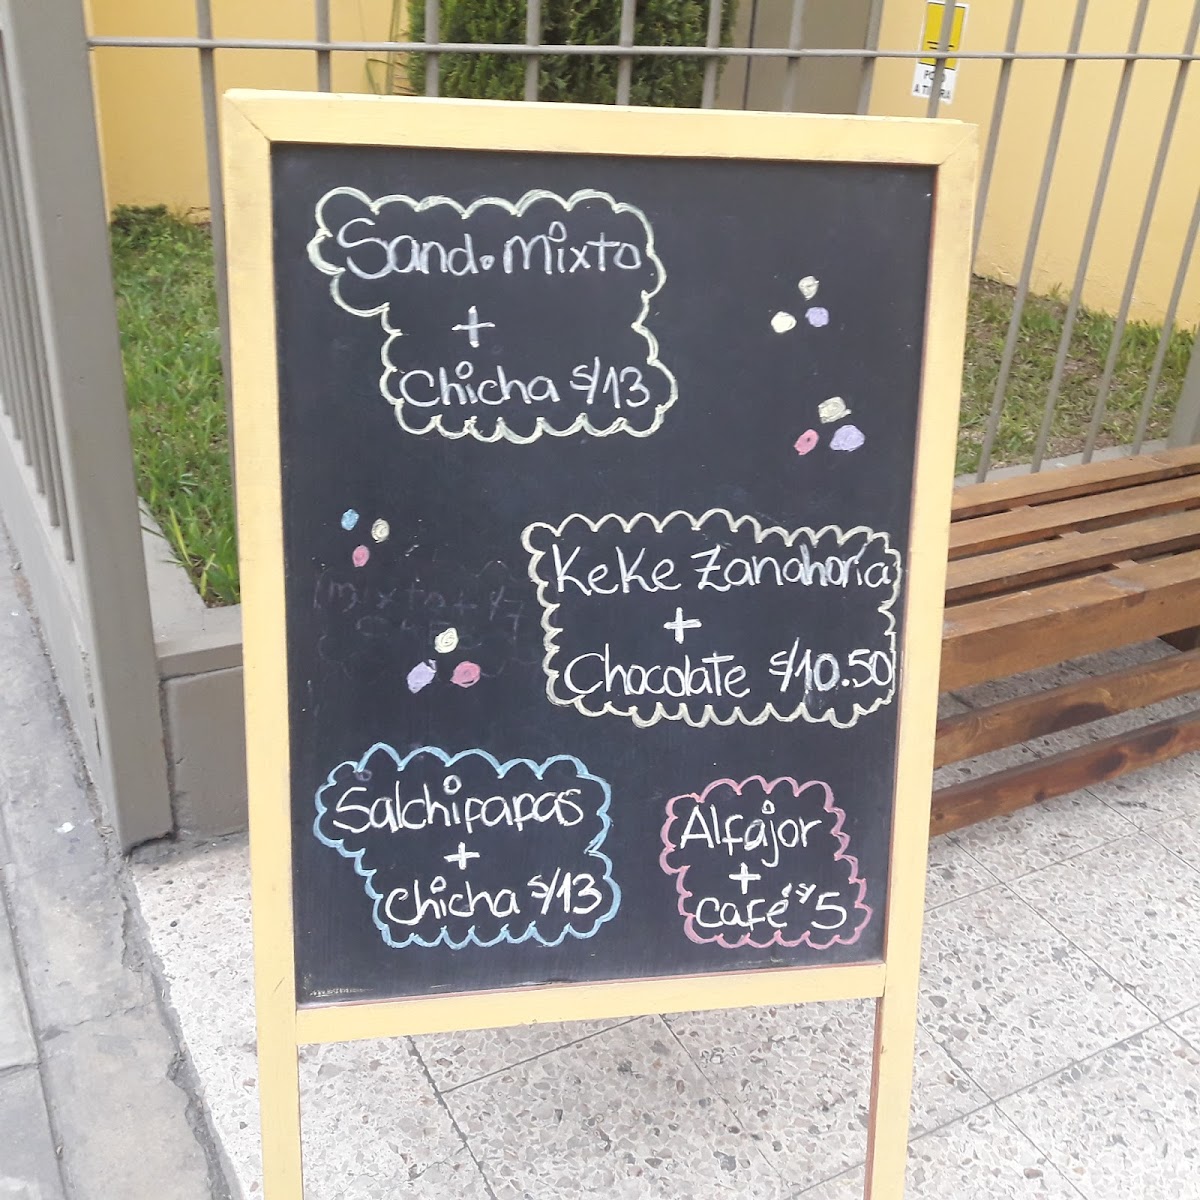 Sand. Mixto
+
Chicha S/13
Keke Zanahoria
+
Chocolate S/10.50
Salchipapas
+
Chicha S/13
Alfajor
+
Café S/5